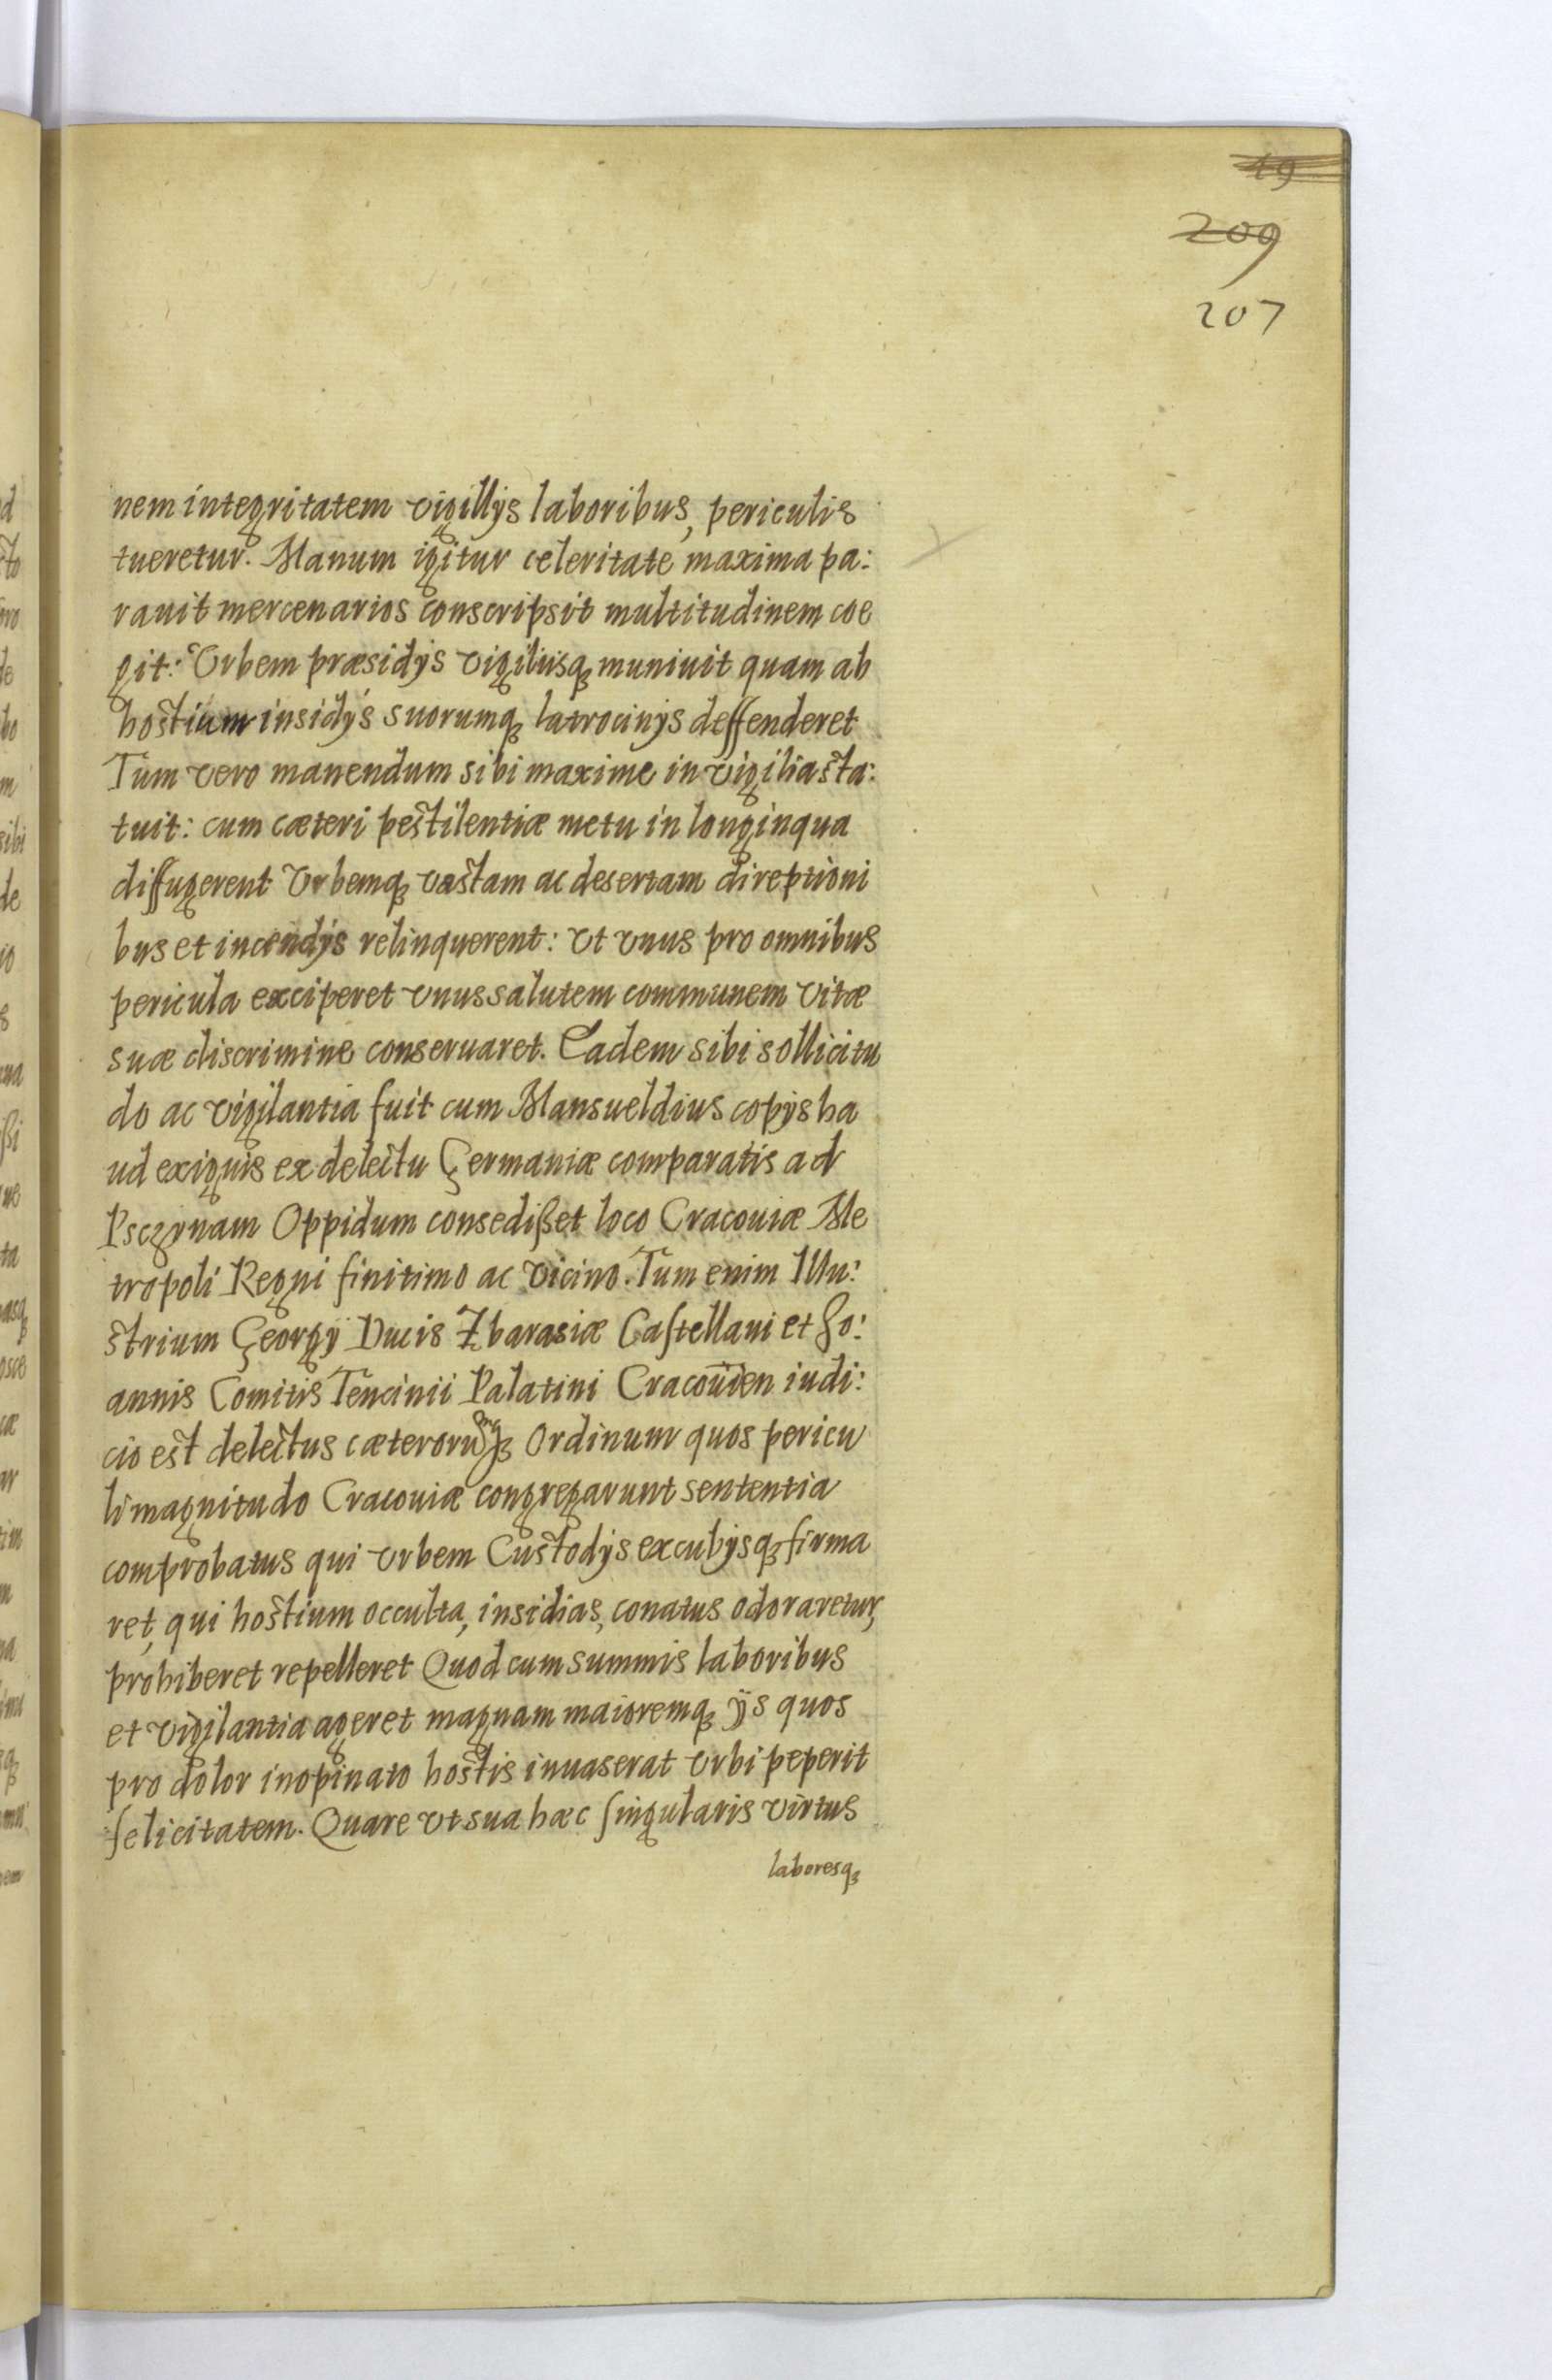 19
209
207
nem integritatem vigillijs laboribus, periculis
tueretur. Manum igitur celeritate maxima pa:
rauit mercenarios conscripsit multitudinem coe
git: Vrbem præsidijs vigilijsq; muniuit quam ab
hostium insidijs suorumq; latrocinijs deffenderet
Tum vero manendum sibi maxime in vigilia sta:
tuit: cum cæteri pestilentiæ metu in longinqua
diffugerent Vrbemq; vastam ac desertam direptioni
bus et incendijs relinquerent: Vt vnus pro omnibus
pericula exciperet vnus salutem communem vitæ
suæ discrimine conseruaret. Eadem sibi sollicitu
do ac vigilantia fuit cum Mansueldius copijs ha
ud exiguis ex delectu Germaniæ comparatis ad
Psczynam Oppidum consedißet loco Cracouiæ Me
tropoli Regni finitimo ac vicino. Tum enim Illu:
strium Georgij Ducis Zbarasiæ Castellani et Jo:
annis Comitis Tencinii Palatini Cracouien iudi:
cio est delectus cæterorumq; Ordinum quos pericu
li magnitudo Cracouiæ congregarunt sententia
comprobatus qui vrbem Custodijs excubijsq; firma
ret, qui hostium occulta, insidias, conatus odoraretur,
prohiberet repelleret Quod cum summis laboribus
et vigilantia ageret magnam maioremq; ijs quos
pro dolor inopinato hostis inuaserat vrbi peperit
felicitatem. Quare vt sua hæc singularis virtus
laboresq;